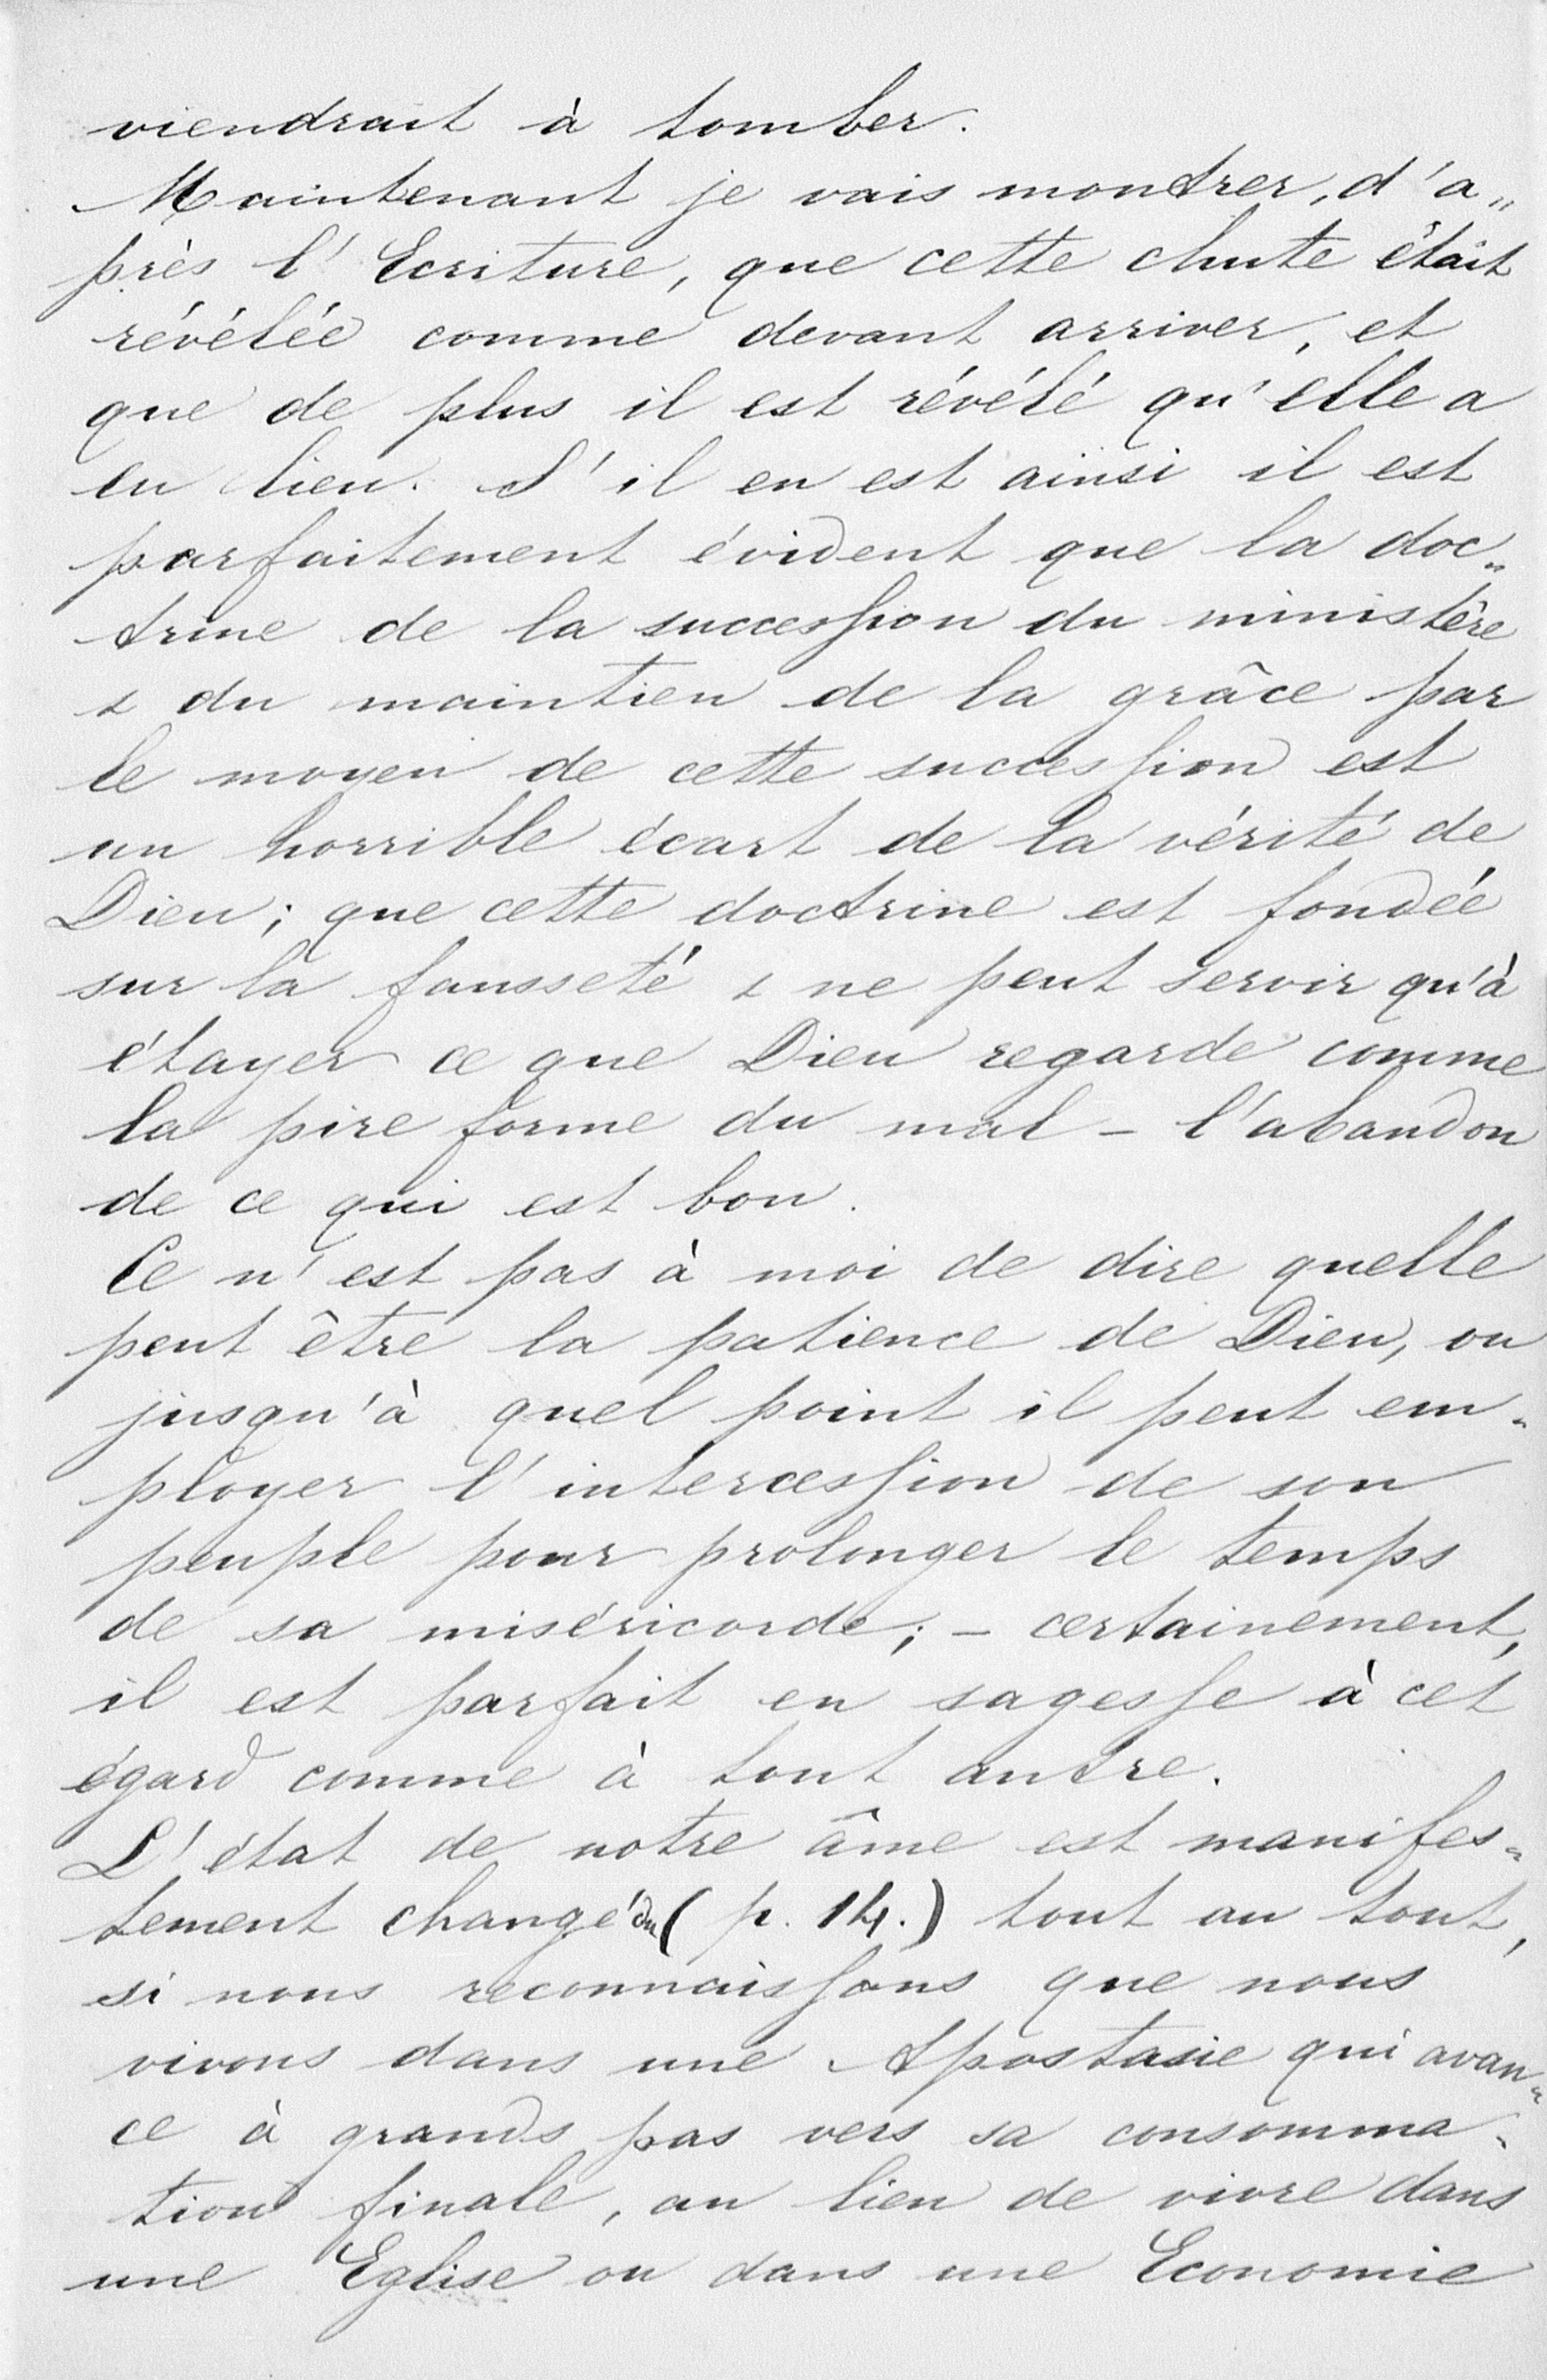 viendrait à tomber.
Maintenant je vais montrer, d'a„
près l'Ecriture, que cette chute était
révélée comme devant arriver, et
que de plus il est révélé qu'elle a
eu lieu. S'il en est ainsi il est
parfaitement évident que la doc„
trine de la succession du ministère
& du maintien de la grâce par
le moyen de cette succession est
un horrible écart de la vérité de
Dieu; que cette doctrine est fondée
sur la fausseté & ne peut servir qu'à
étayer ce que Dieu regarde comme
la pire forme du mal – l'abandon
de ce qui est bon.
Ce n'est pas à moi de dire quelle
peut être la patience de Dieu, ou
jusqu'à quel point il peut em„
ployer l'intercession de son
peuple pour prolonger le temps
de sa miséricorde; – certainement,
il est parfait en sagesse à cet
égard comme à tout autre.
L'état de notre âme est manifes„
tement changé du (p. 14.) tout au tout,
si nous reconnaissons que nous
vivons dans une Apostasie qui avan„
ce à grands pas vers sa consomma„
tion finale, au lieu de vivre dans
une Eglise ou dans une Economie